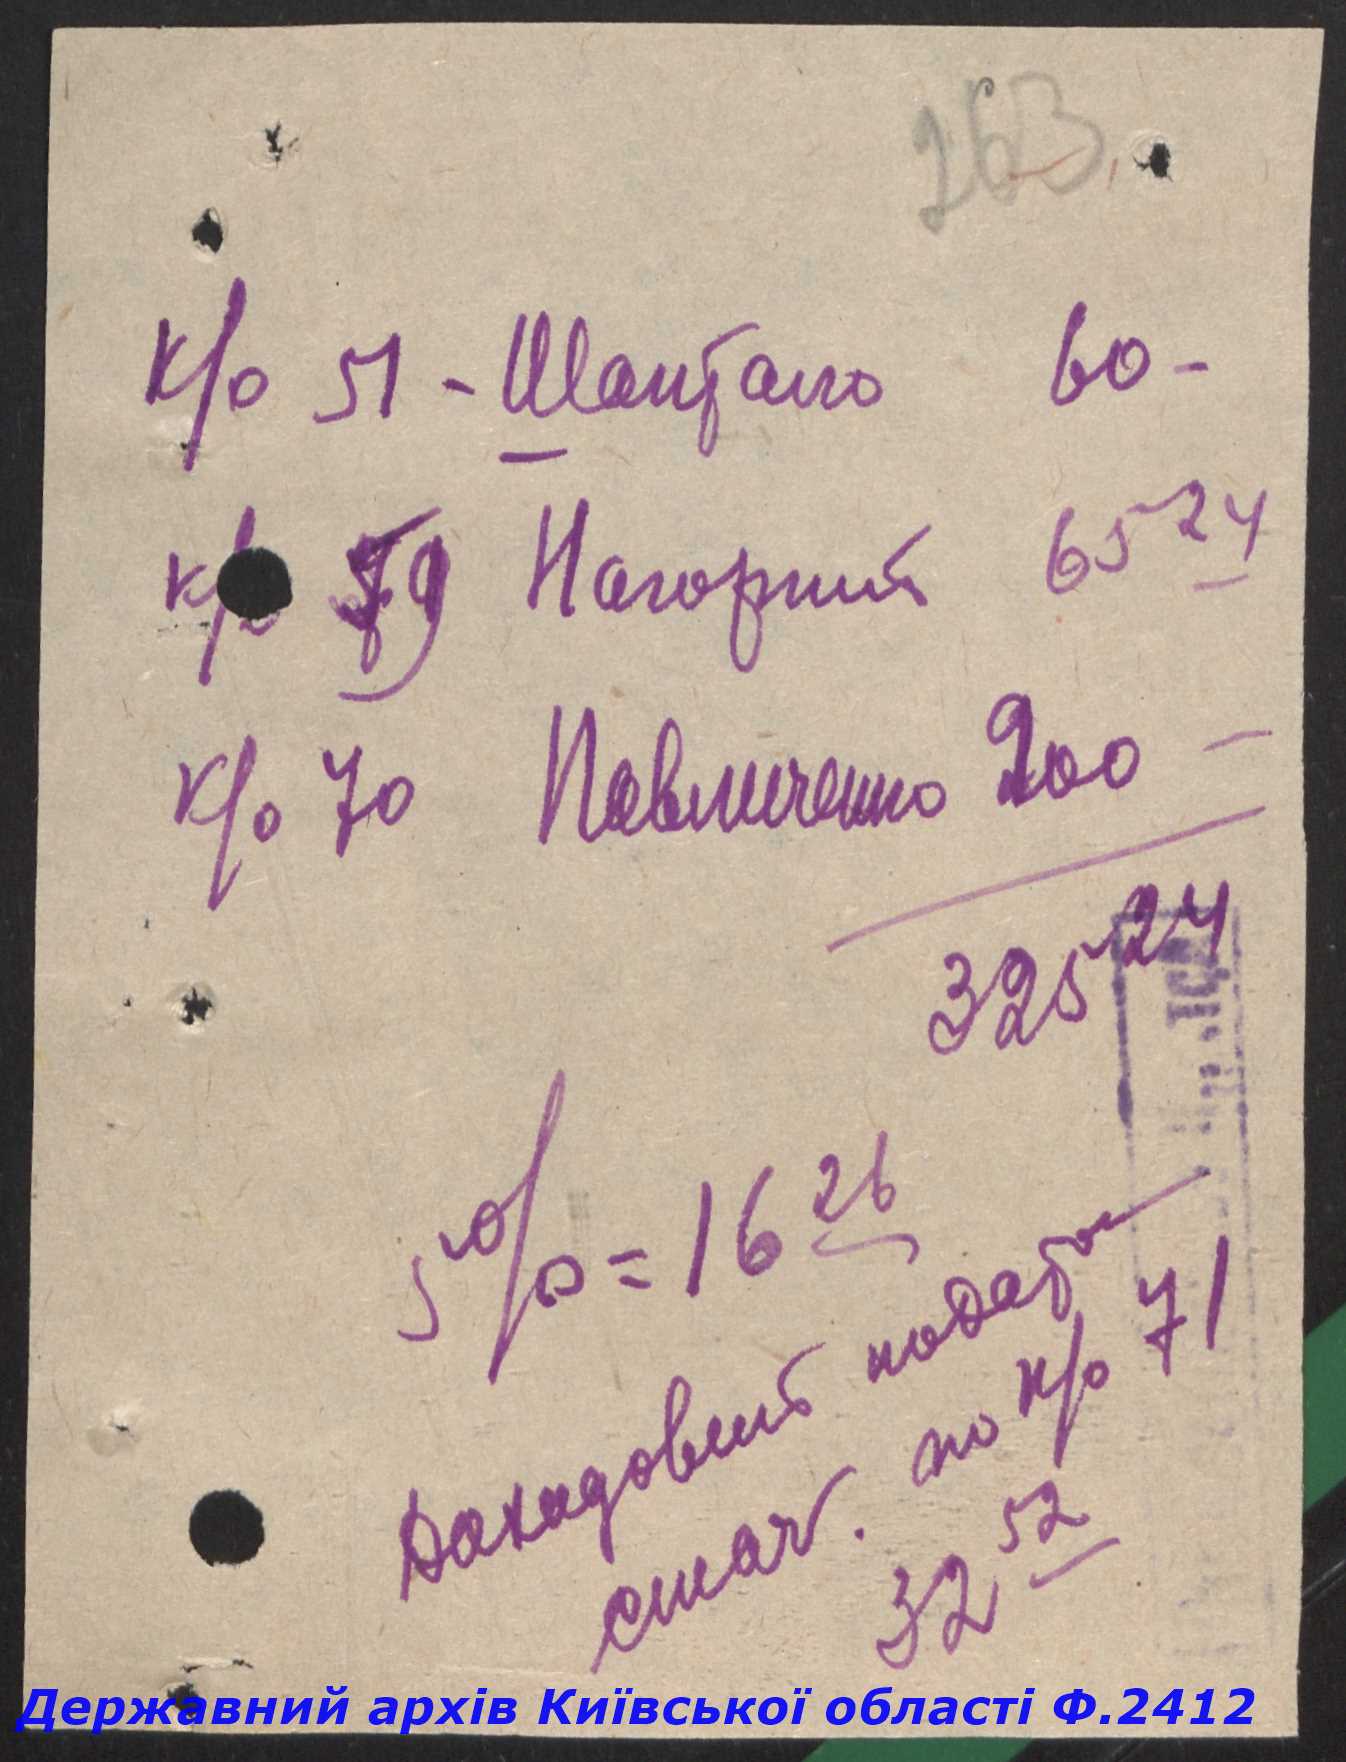 263
к/о 51 - Шаптало 60 -
к/о 79 Нагорний 65 24
к/о 70 Павличенко 200 -
325 24
5% = 16 26
Доходовий подат
спач. по к/о 71
32 52
Державний архів Київської області Ф.2412